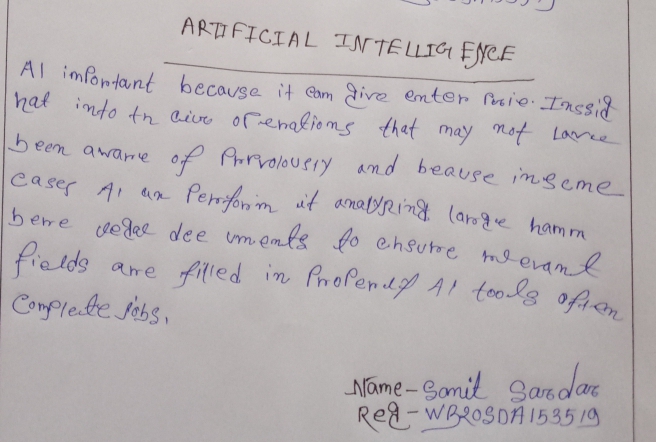 ARTIFICIAL INTELLIGENCE
AI important because it can give enter Prsie. Inssig
hat into tn eive operations that may not Larve
been aware of Prrevolousry and beause in seme
cases AI an Perrform it analyPing laroge hamm
berre legal dee uments to ensure relevant
fields are filled in Properly AI tools often
Compleate jobs.
Name - Somit Sardar
Reg - WB20SDA153519